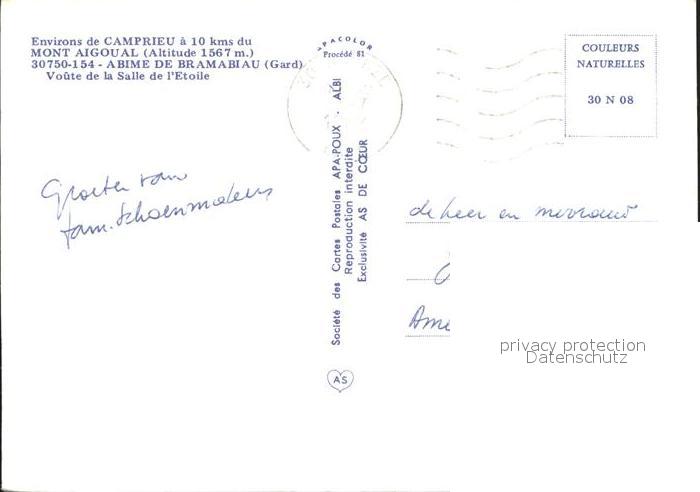 Environs de CAMPRIEU à 10 kms du
MONT AIGOUAL (Altitude 1567 m.)
30750-154 - ABIME DE BRAMABIAU (Gard)
Voûte de la Salle de l'Etoile
APACOLOR
Procédé 81
COULEURS
NATURELLES
30 N 08
Société des Cartes Postales APA-POUX - ALBI
Reproduction interdite
Exclusivité AS DE CŒUR
AS
Groeten van
fam. Schoenmakers
de heer en mevrouw
privacy protection
Datenschutz